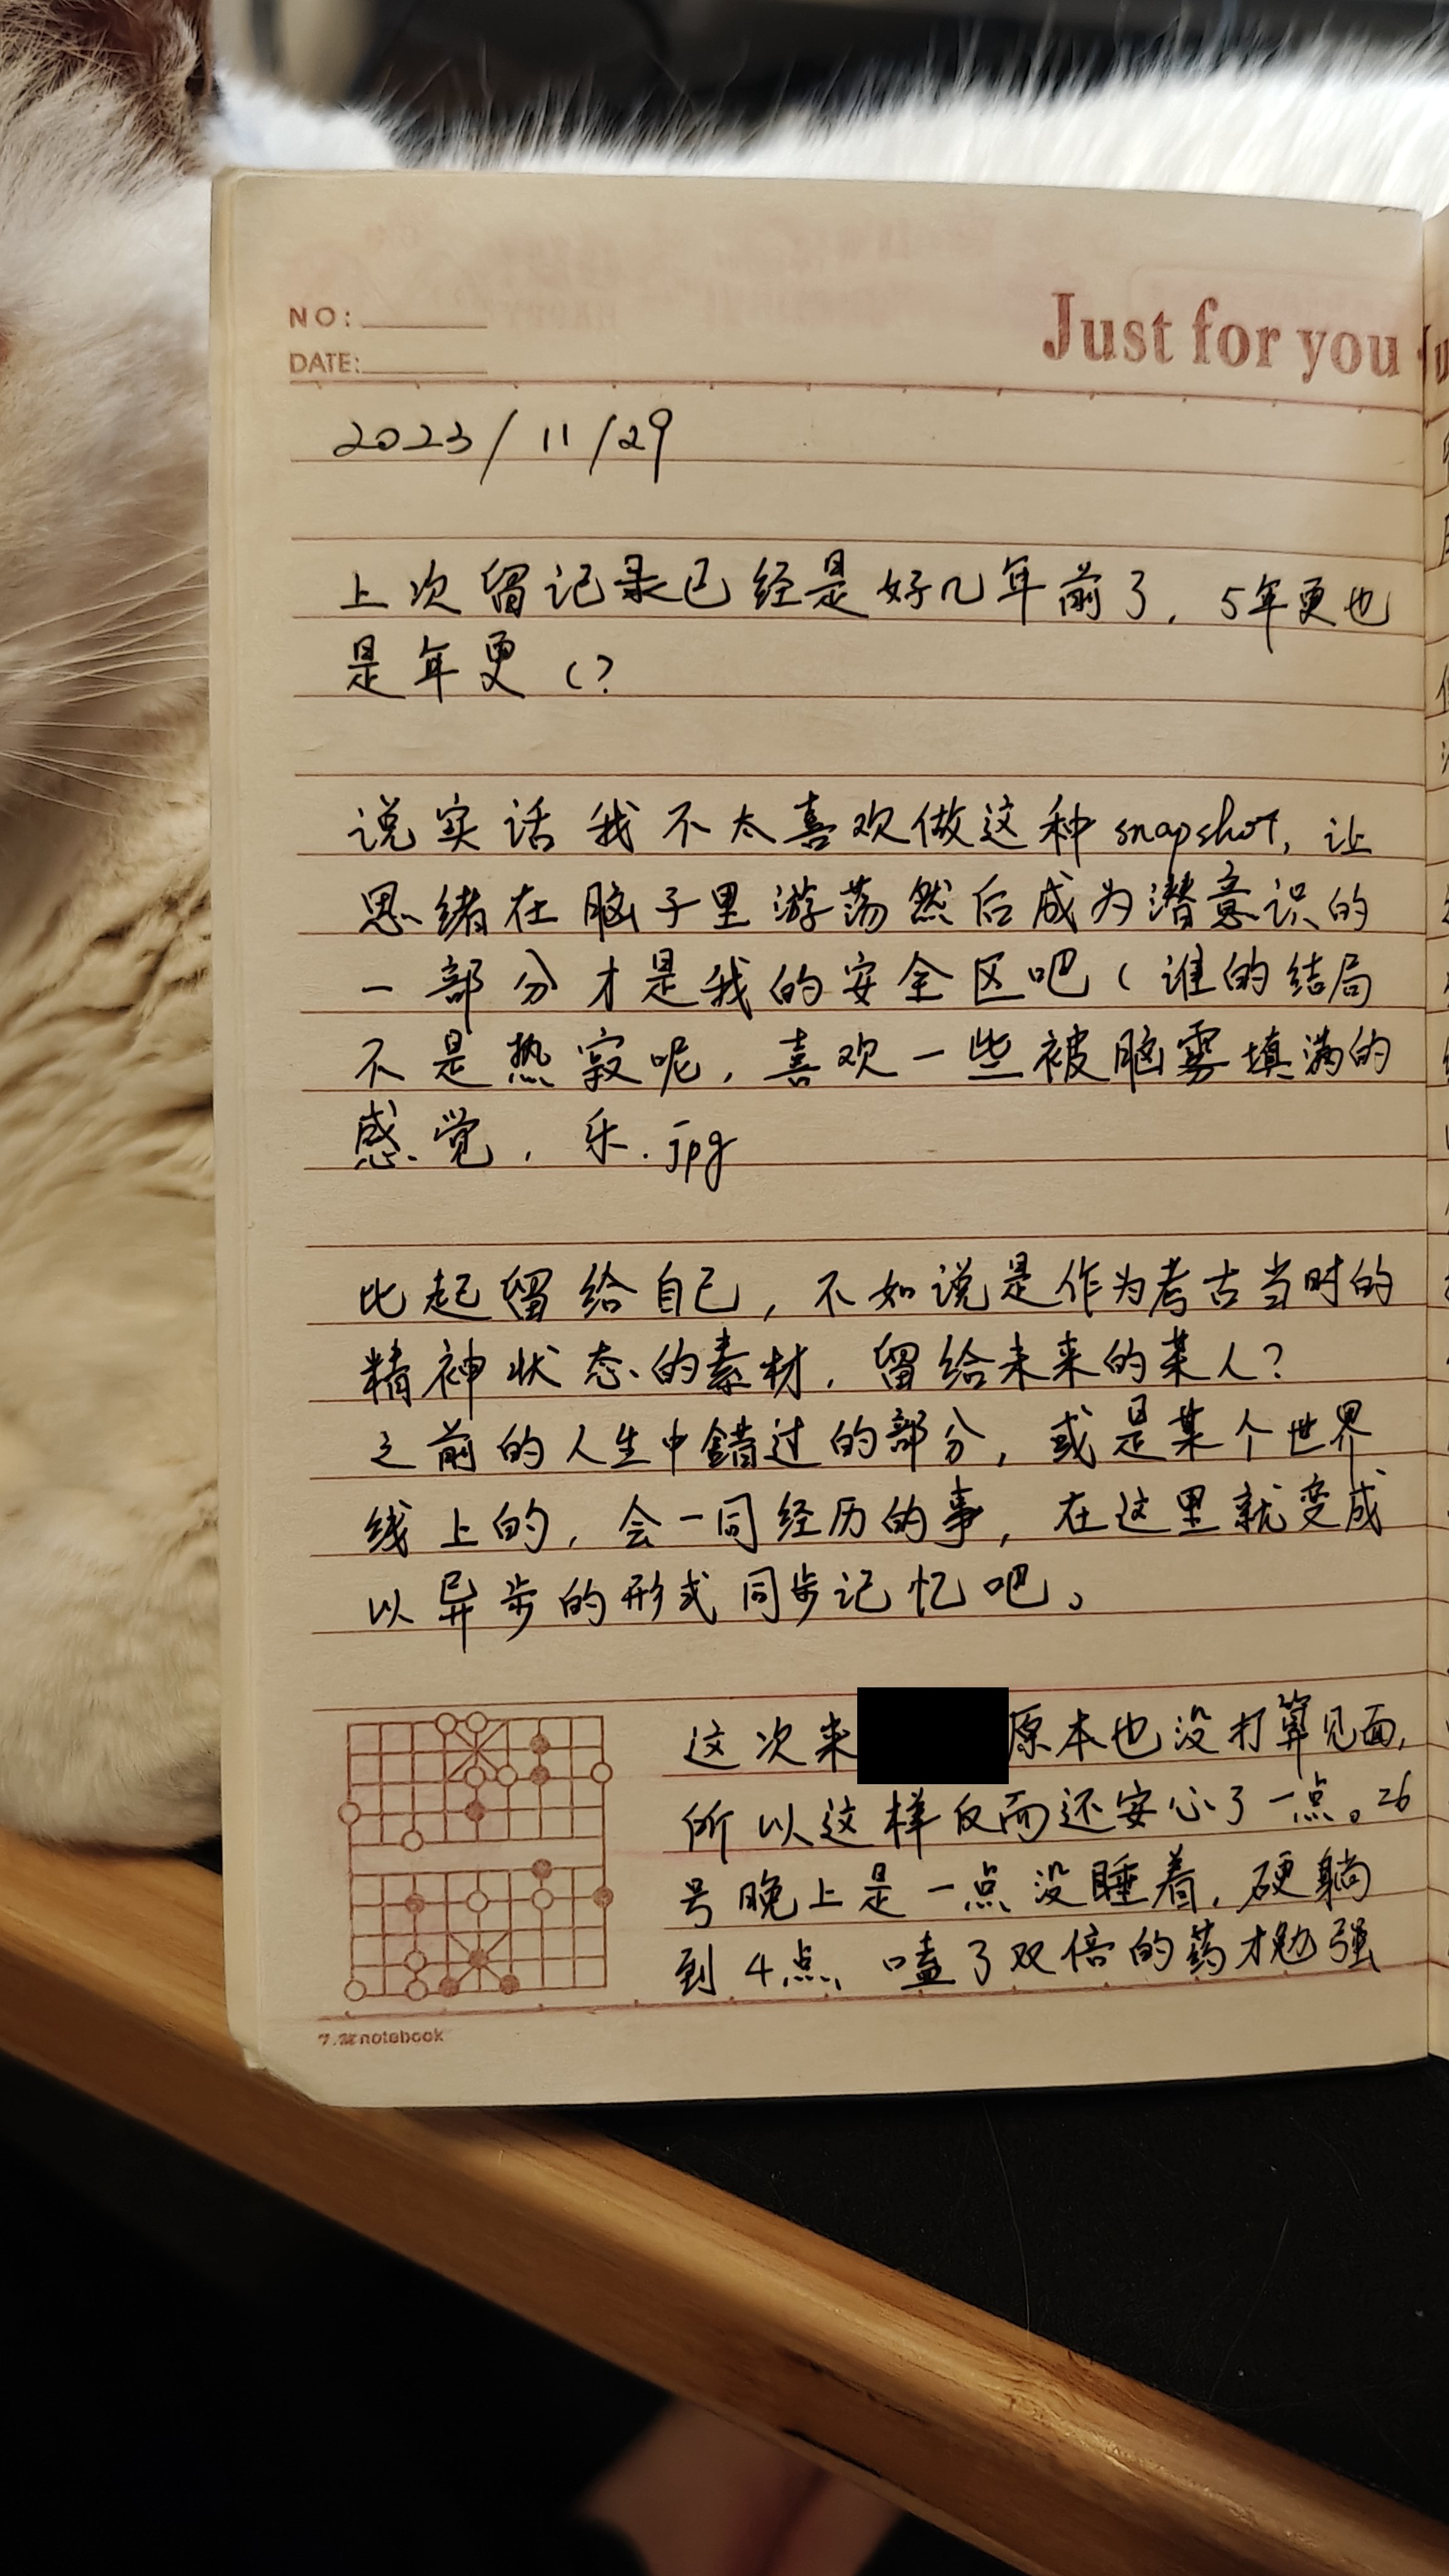 NO:
DATE:
Just for you
2023/11/29
上次留记录已经是好几年前了，5年更也
是年更（？
说实话我不太喜欢做这种snapshot，让
思绪在脑子里游荡然后成为潜意识的
一部分才是我的安全区吧（谁的结局
不是热寂呢，喜欢一些被脑雾填满的
感觉，乐.jpg
比起留给自己，不如说是作为考古当时的
精神状态的素材，留给未来的某人？
之前的人生中错过的部分，或是某个世界
线上的，会一同经历的事，在这里就变成
以异步的形式同步记忆吧。
这次来 原本也没打算见面，
所以这样反而还安心了一点。26
号晚上是一点没睡着，硬躺
到4点、嗑了双倍的药才勉强
notebook